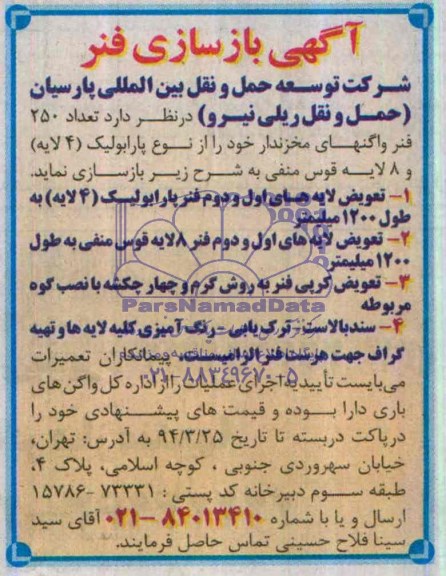 آگهی بازسازی فنر
شرکت توسعه حمل و نقل بین المللی پارسیان
(حمل و نقل ریلی نیرو) درنظر دارد تعداد ۲۵۰
فنر واگنهای مخزندار خود را از نوع پارابولیک (۴ لایه)
و ۸ لایه قوس منفی به شرح زیر بازسازی نماید.
۱- تعویض لایه های اول و دوم فنر پارابولیک (۴ لایه) به
طول ۱۲۰۰ میلیمتر
۲- تعویض لایه های اول و دوم فنر ۸ لایه قوس منفی به طول
۱۲۰۰ میلیمتر
۳- تعویض کرپی فنر به روش گرم و چهار چکشه با نصب گوه
مربوطه
ParsNamadData
۴- سندبلاست - ترک یابی - رنگ آمیزی کلیه لایه ها و تهیه
گراف جهت هر ست فنر الزامیست. پیمانکاران تعمیرات
۰۲۱-۸۸۳۴۹۶۷۰-۵
می‌بایست تأییدیه اجرای عملیات را از اداره کل واگن های
باری دارا بوده و قیمت های پیشنهادی خود را
درپاکت دربسته تا تاریخ ۹۴/۳/۲۵ به آدرس: تهران،
خیابان سهروردی جنوبی ، کوچه اسلامی، پلاک ۴،
طبقه سوم دبیرخانه کد پستی : ۷۳۳۳۱ -۱۵۷۸۶
ارسال و یا با شماره ۸۴۰۱۳۴۱۰ -۰۲۱ آقای سید
سینا فلاح حسینی تماس حاصل فرمایند.